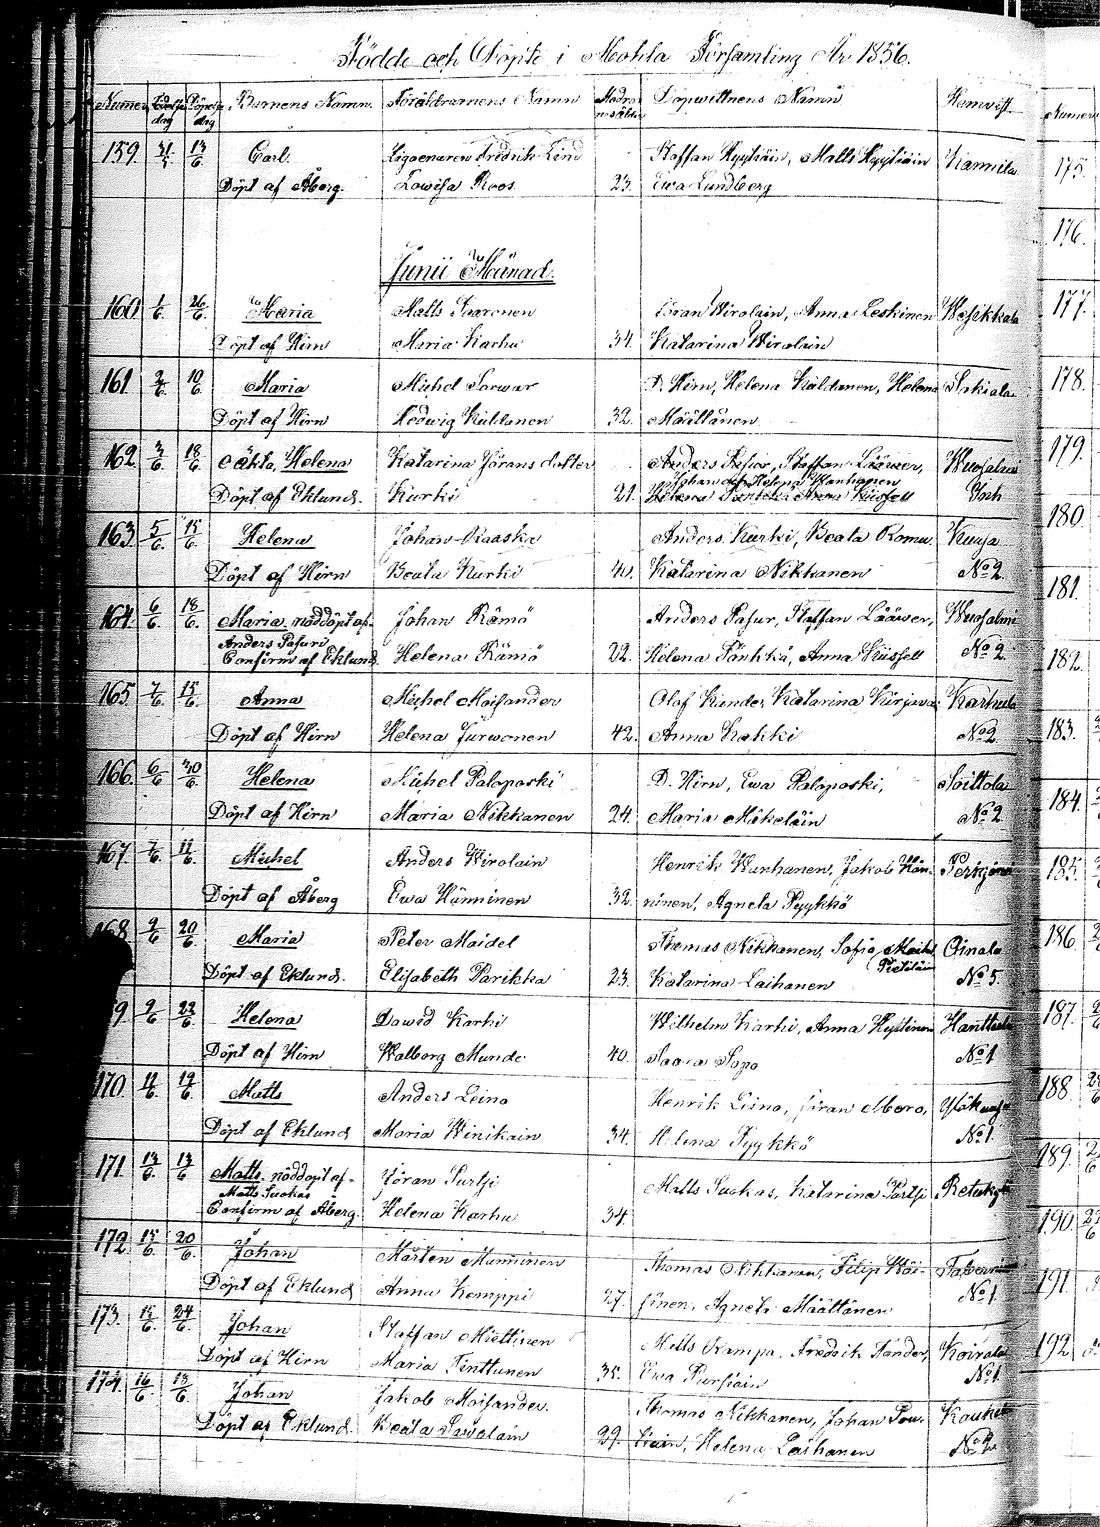 Födde och Döpte i Mohla Församling År 1856.
Numer Födelse dag Döpelse dag Barnens Namn. Föräldrarnens Namn Modrens ålder Dopwittnens Namn Hemvist.
159. 31/5 13/6 Carl. Fredrik Lind Staffan Hyytiäin, Matts Hyytiäin Kannila
Döpt af Åberg. Lowisa Roos. 23. Ewa Lundberg
Junii Månad.
160 1/6 26/6 Maria Matts Paaronen Göran Wirolain, Anna Leskinen Wesikkala
Döpt af Hirn Maria Karhu 34. Katarina Wirolain
161 2/6 10/6 Maria Michel Sarwar D. Hirn, Helena Kuldanen, Helena
Döpt af Hirn Hedwig Kuldanen 32. Määttänen
162 3/6 18/6 Oäkta, Helena Katarina Jörans dotter Anders Pasur, Staffan Lääwer, Wuosalmi
Johan och Helena Wanhanen
Döpt af Eklund. Kurki 21. Helena Pänkkä, Anna Kiisfelt Inh
163 5/6 15/6 Helena Johan Raaska Anders Kurki, Beata Romu Kuusa
Döpt af Hirn Beata Kurki 40. Katarina Nikkanen No 2
164 6/6 18/6 Maria nöddöpt af Johan Rämö Anders Pasur, Staffan Lääwer, Wuosalmi
Anders Pasuri
Confirm af Eklund. Helena Rämö 22. Helena Pänkkä, Anna Kiisfelt No 2.
165 7/6 15/6 Anna Michel Moisander Olof Kinder, Katarina Kurjava Karhula
Döpt af Hirn Helena Jurwonen 42. Anna Kakki No 2
166. 6/6 30/6 Helena Michel Paloposki D. Hirn, Ewa Paloposki, Soittola
Döpt af Hirn Maria Nikkanen 24. Maria Mikoläin No 2
167 7/6 11/6 Michel Anders Wirolain Henrik Wanhanen, Jakob Hän- Perkjärvi
Döpt af Åberg Ewa Hänninen 32. ninen, Agneta Pyykkö
168 9/6 20/6 Maria Peter Maidel Thomas Nikkanen, Sofia Oinala
Pietiläin
Döpt af Eklund. Elisabeth Parikka 23. Katarina Laihanen No 5.
9 9/6 22/6 Helena Dawid Karhi Wilhelm Karhi, Anna Hyytinen Hanttula
Döpt af Hirn Walborg Munde 40. Saara Sopo No 1
170 11/6 19/6 Matts Anders Leino Henrik Leino, Jöran Mero, Yläkuusa
Döpt af Eklund Maria Winikain 34. Helena Pyykkö No 1
171 13/6 13/6 Matts. nöddöpt af Jöran Surtji Matts Suokas, Katarina Surtji Retukylä
Matts Suokas
Confirm af Åberg. Helena Karhu 34.
172. 15/6 20/6 Johan Mårten Munninen Thomas Nikkanen, Filip Häi-
Döpt af Eklund Anna Kemppi 27. finen, Agneta Määttänen No 1.
173. 15/6 24/6 Johan Staffan Miettinen Matts Kampa, Fredrik Sander, Koirala
Döpt af Hirn Maria Tinttunen 35. Ewa Pursiain No 1
174. 16/6 18/6 Johan Jakob Moisander. Thomas Nikkanen, Johan Kaukila
Döpt af Eklund. Beata Sawolain 29. Helena Laihanen No 2
Numer
175.
176.
177.
178.
179.
180.
181.
182.
183.
184.
185.
186.
187.
188.
189.
190.
191.
192.